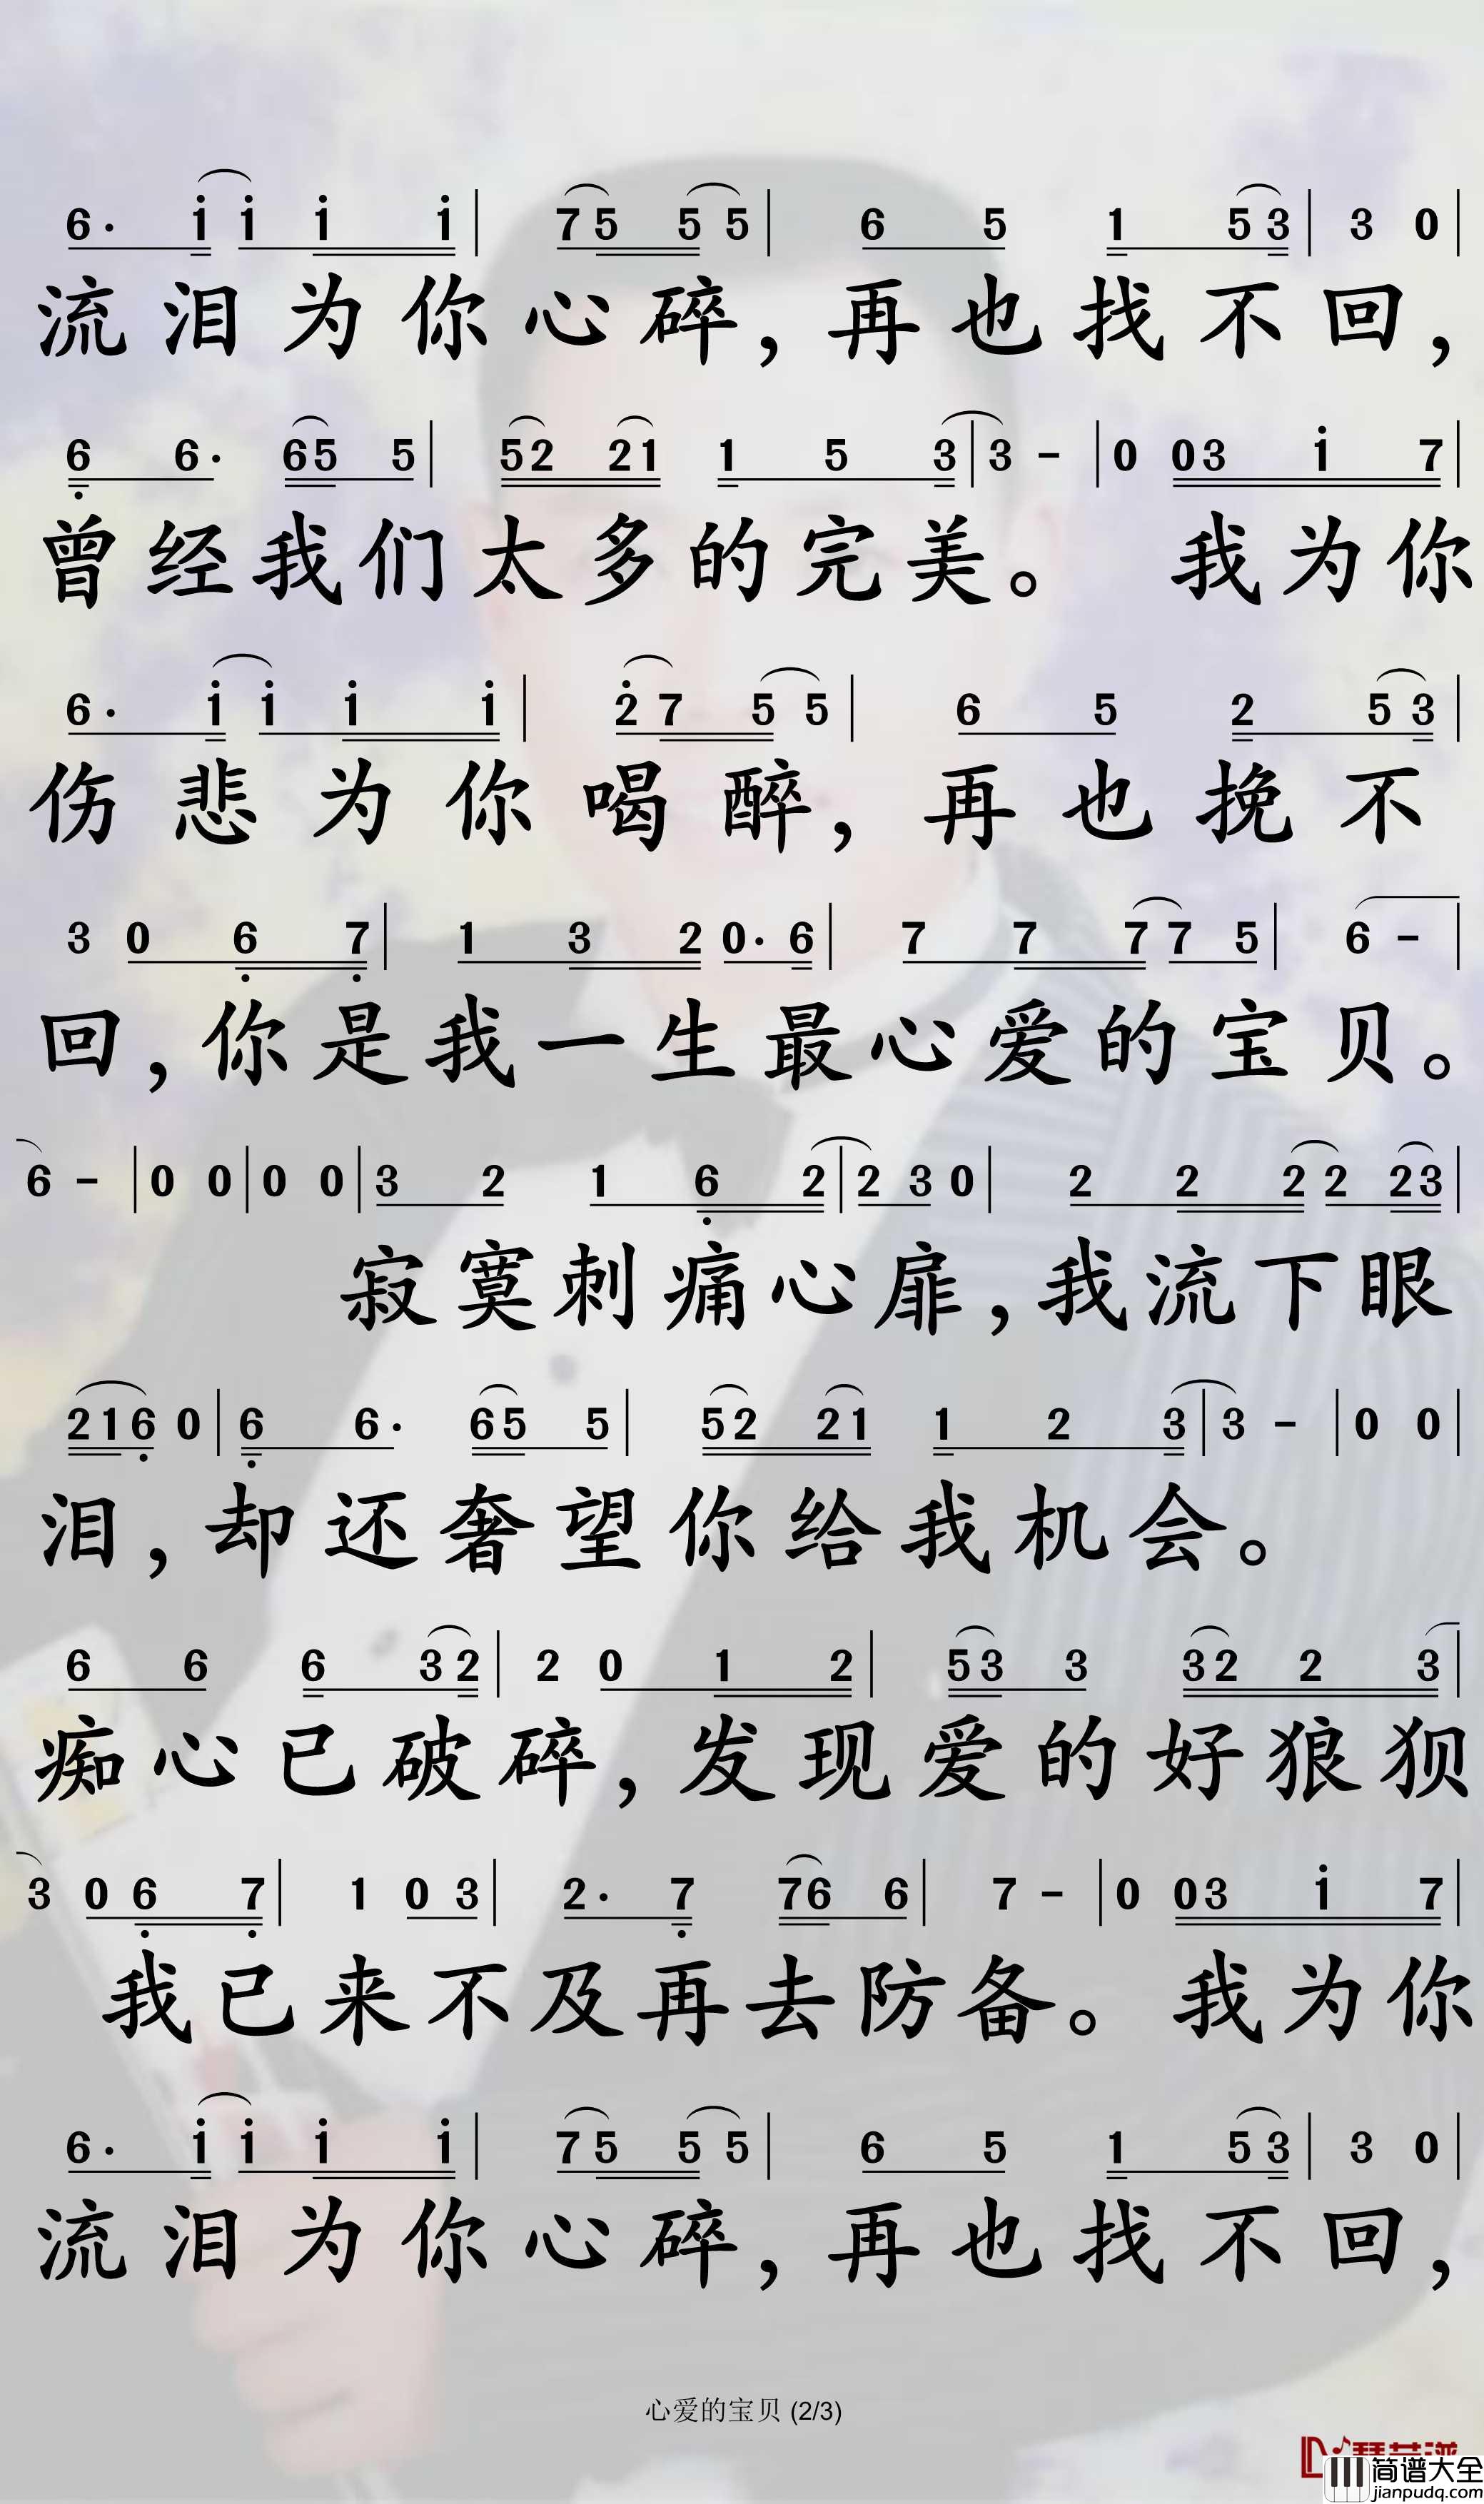 6· i i i i | 7 5 5 5 | 6 5 1 5 3 | 3 0 |
流泪为你心碎，再也找不回，
6̣ 6· 6 5 5 | 5 2 2 1 1 5 3 | 3 - | 0 0 3 i 7 |
曾经我们太多的完美。 我为你
6· i i i i | 2̇ 7 5 5 | 6 5 2 5 3 |
伤悲为你喝醉，再也挽不
3 0 6̣ 7̣ | 1 3 2 0· 6 | 7 7 7 7 5 | 6 - |
回，你是我一生最心爱的宝贝。
6 - | 0 0 | 0 0 | 3 2 1 6̣ 2 | 2 3 0 | 2 2 2 2 2 3 |
寂寞刺痛心扉，我流下眼
2 1 6̣ 0 | 6̣ 6· 6 5 5 | 5 2 2 1 1 2 3 | 3 - | 0 0 |
泪，却还奢望你给我机会。
6 6 6 3 2 | 2 0 1 2 | 5 3 3 3 2 2 3 |
痴心已破碎，发现爱的好狼狈
3 0 6̣ 7̣ | 1 0 3 | 2· 7̣ 7 6 6 | 7 - | 0 0 3 i 7 |
我已来不及再去防备。我为你
6· i i i i | 7 5 5 5 | 6 5 1 5 3 | 3 0 |
流泪为你心碎，再也找不回，
心爱的宝贝 (2/3)
简谱大全
jianpudq.com